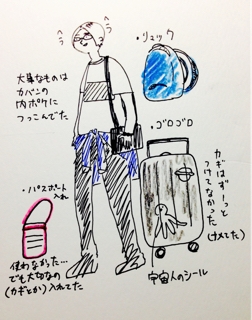 ヘラ
ヘラ
・リュック
大事なものは
カバンの
内ポケに
つっこんでた
・ゴロゴロ
カギはずーっと
つけてなかった
(ナメてた)
・パスポート
入れ
使わなかった…
でも大切なの
(カギとか)入れてた
宇宙人のシール